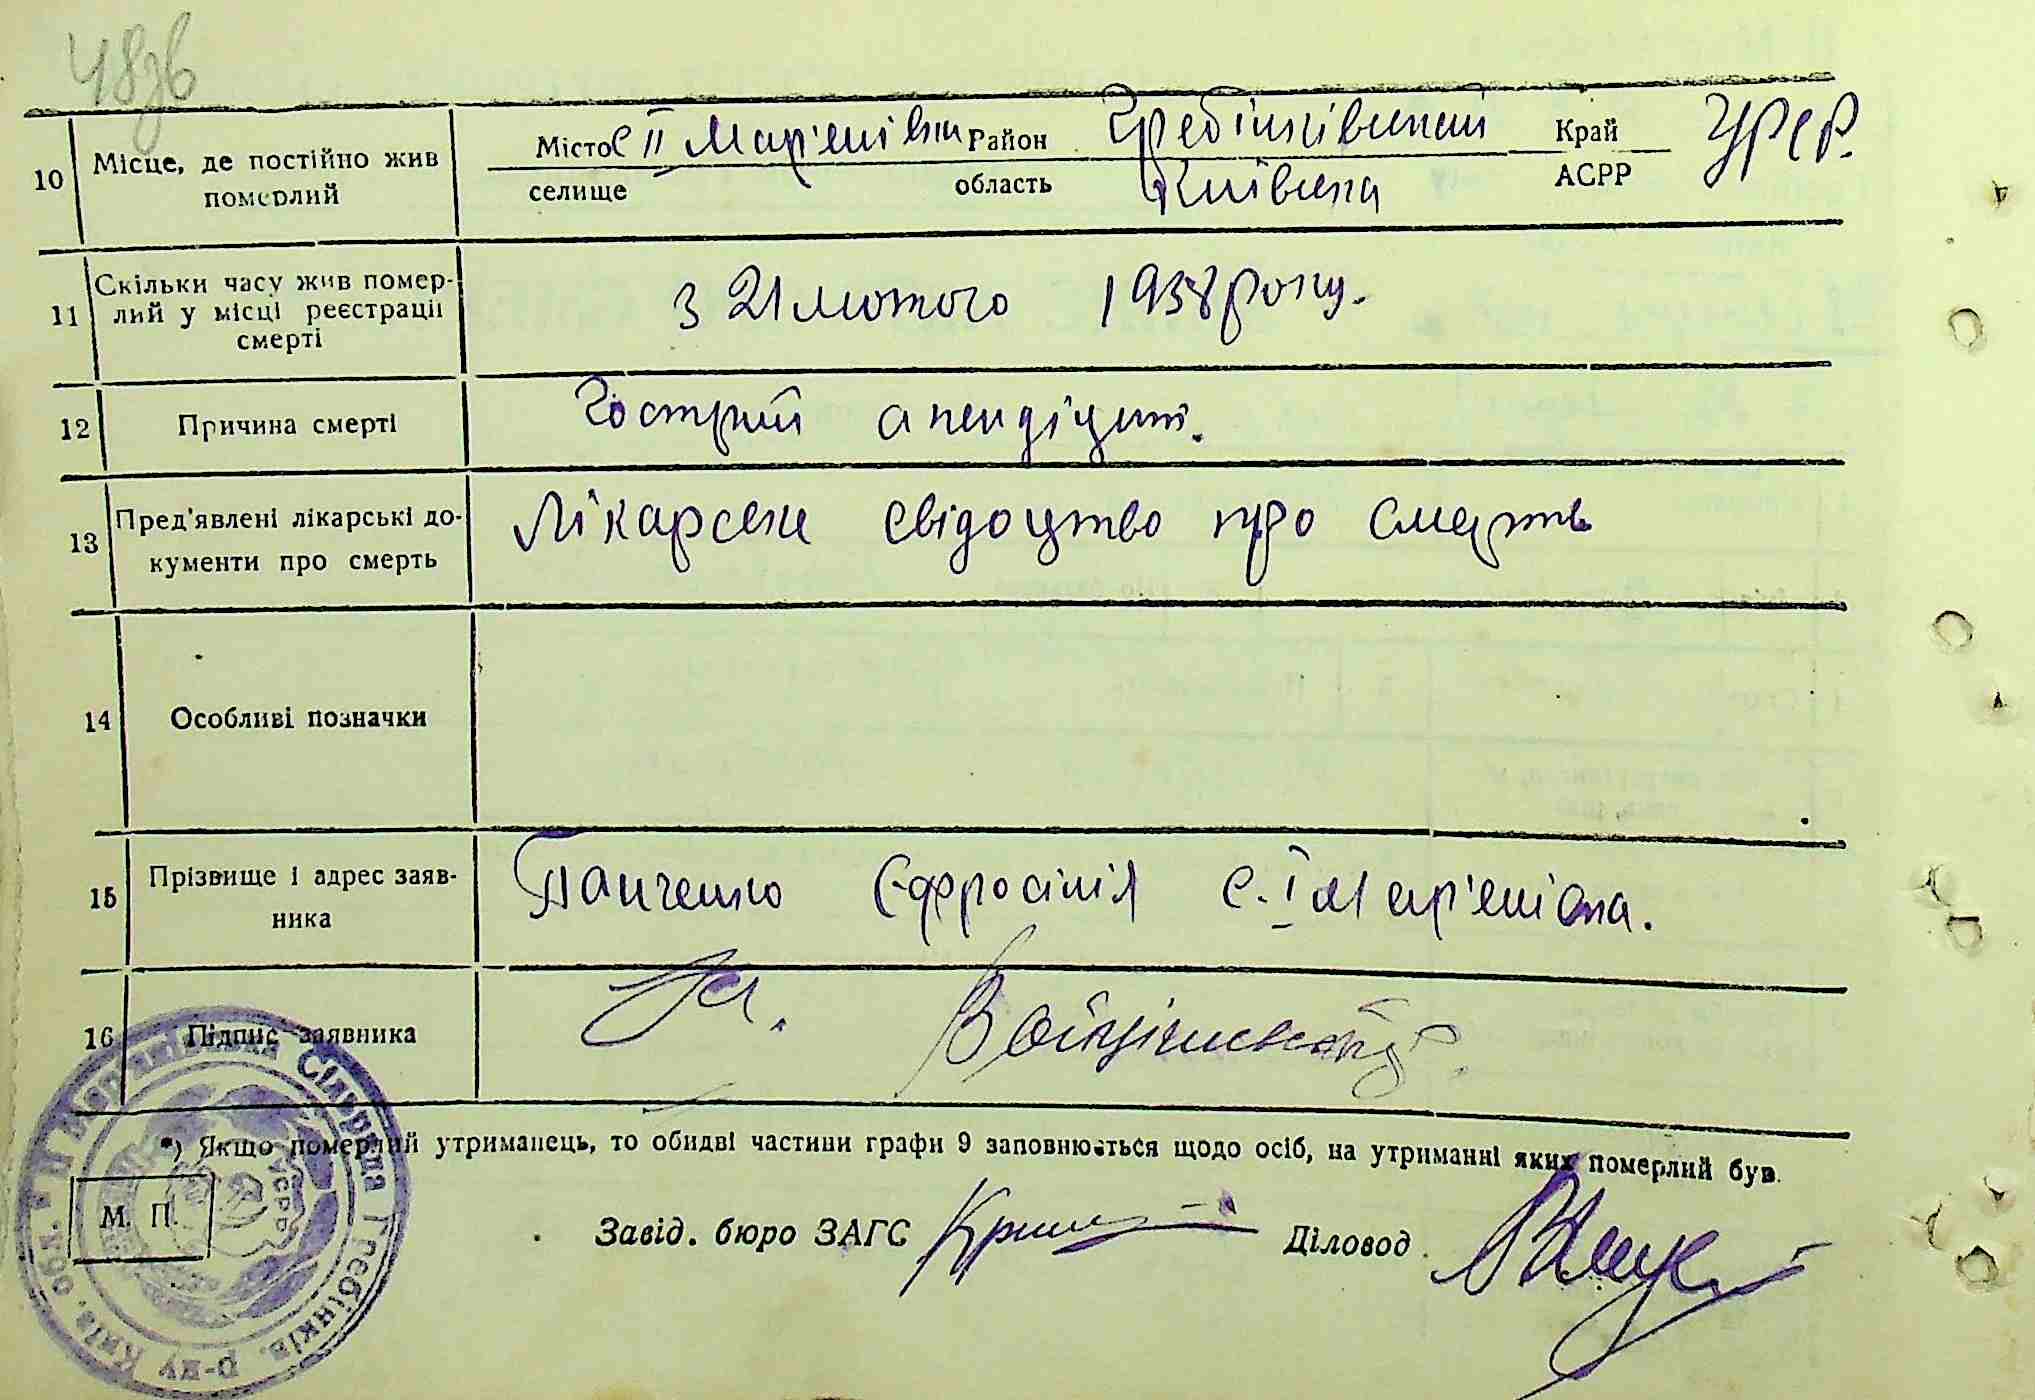 48зв
10 Місце, де постійно жив Місто с II Мар'янівки Район Гребінківський Край УРСР.
померлий селище область Київська АСРР
11 Скільки часу жив помер-
лий у місці реєстрації з 21 лютого 1938 року.
смерті
12 Причина смерті Гострий апендіцит.
13 Пред'явлені лікарські до- Лікарське свідоцтво про смерть
кументи про смерть
14 Особливі позначки
15 Прізвище і адрес заяв- Панченко Єфросінія с. I Мар'янівка.
ника
16 Підпис заявника
*) Якщо померлий утриманець, то обидві частини графи 9 заповнюється щодо осіб, на утриманні яких померлий був.
М. П. Завід. бюро ЗАГС Діловод
Сільрада Гребінків. р-ну Київ. обл.
УСРР